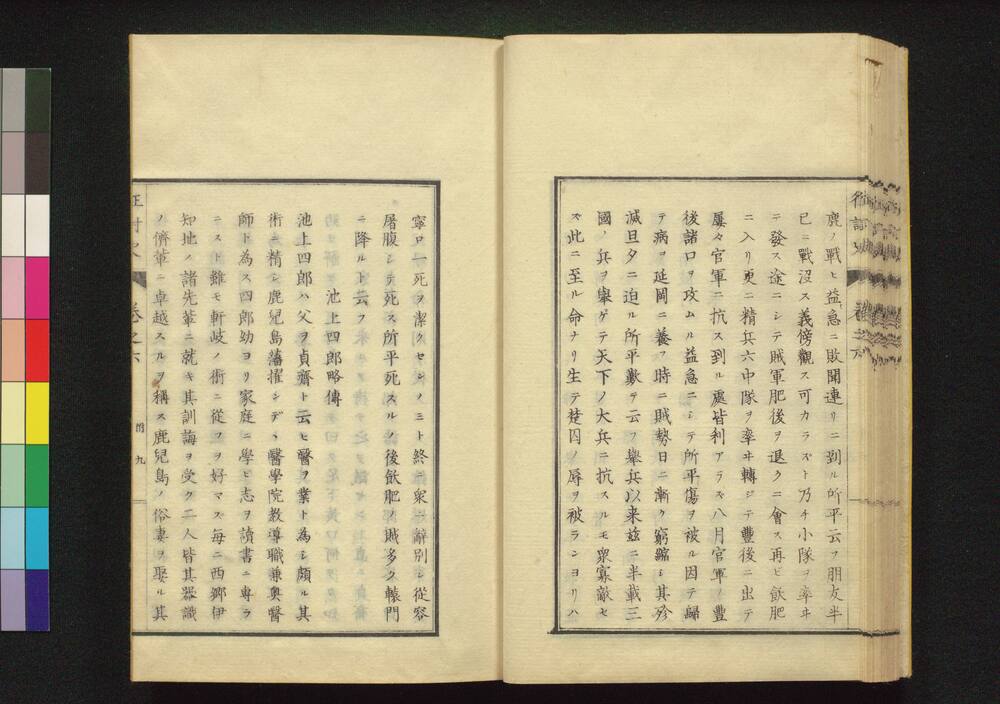 鹿ノ戰ヒ益〻急ニ敗聞連リニ到ル所平云フ朋友半
已ニ戰沒ス義傍觀ス可カラスト乃チ小隊ヲ率ヰ
ニ發ス途ニシテ賊軍肥後ヲ退クニ會ス再ビ飫肥
ニ入リ更ニ精兵六中隊ヲ率ヰ轉ジテ豐後ニ出テ
屢々官軍ニ抗ス到ル處皆利アラズ八月官軍ノ豐
後諸口ヲ攻ムル益急ニシテ所平傷ヲ被ル因テ歸
テ病ヲ延岡ニ養フ時ニ賊勢日ニ漸ク窮縮シ其殄
滅旦夕ニ迫ル所平歎ヲ云フ擧兵以来茲ニ半載三
國ノ兵ヲ擧ゲテ天下ノ大兵ニ抗スルモ衆寡敵セ
ズ此ニ至ル命ナリ生テ楚囚ノ辱ヲ被ランヨリハ
寧ロ一死ヲ潔クセンノミト終ニ衆ニ辭別シ從容
屠腹シテ死ス所平死スルノ後飫肥ノ賊多ク轅門
ニ降ルト云フ
池上四郎略傳
池上四郎ハ父ヲ貞齋ト云ヒ醫ヲ業ト為シ頗ル其
術ニ精シ鹿兒島藩擢ンデヽ醫學院教導職兼奥醫
師ト為ス四郎幼ヨリ家庭ニ學ビ志ヲ讀書ニ專ラ
ニスト雖モ軒岐ノ術ニ從フヲ好マス毎ニ西郷伊
知地ノ諸先輩ニ就キ其訓誨ヲ受ク二人皆其器識
ノ儕輩ニ卓越スルヲ稱ス鹿兒島ノ俗妻ヲ娶ル其
卷之六
附 九